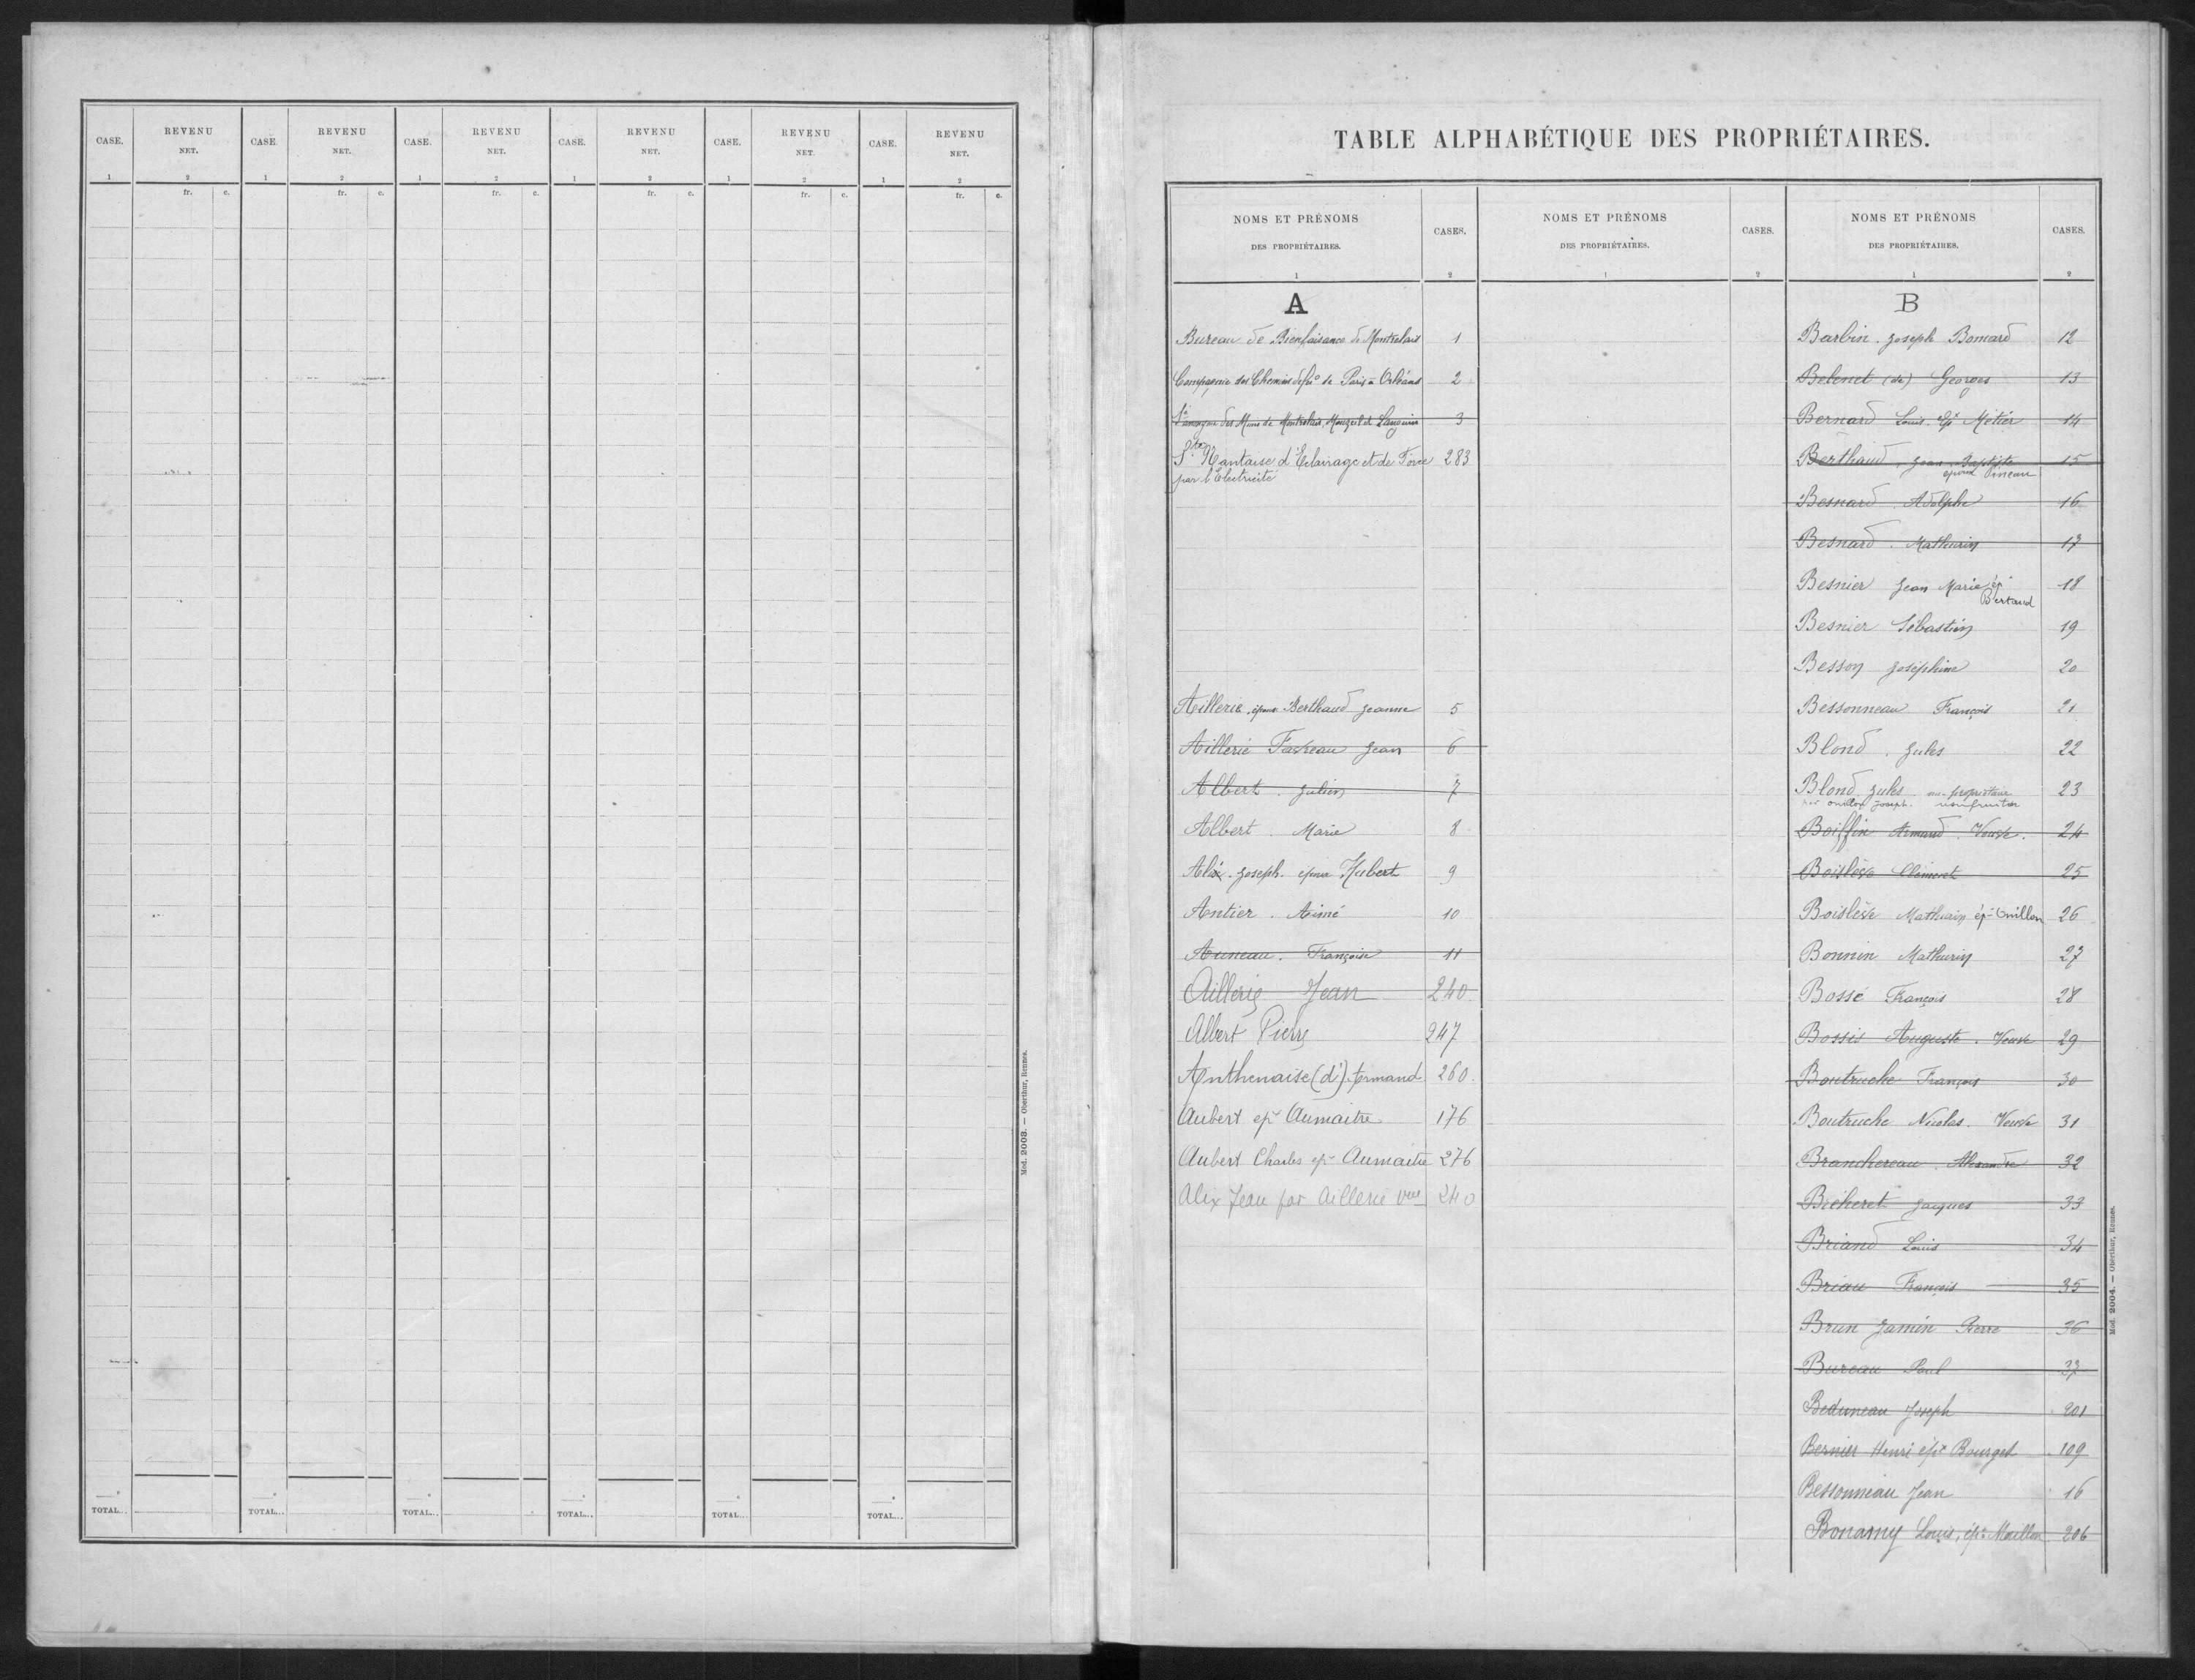 CASE. REVENU NET. CASE. REVENU NET. CASE. REVENU NET. CASE. REVENU NET. CASE. REVENU NET. CASE. REVENU NET.
1 2 1 2 1 2 1 2 1 2 1 2
fr. c. fr. c. fr. c. fr. c. fr. c. fr. c.
TOTAL... TOTAL... TOTAL... TOTAL... TOTAL... TOTAL...
Mod. 2003. — Oberthur, Rennes.
TABLE ALPHABÉTIQUE DES PROPRIÉTAIRES.
NOMS ET PRÉNOMS DES PROPRIÉTAIRES. CASES. NOMS ET PRÉNOMS DES PROPRIÉTAIRES. CASES. NOMS ET PRÉNOMS DES PROPRIÉTAIRES. CASES.
1 2 1 2 1 2
A
Bureau de Bienfaisance de Montrelais 1
Compagnie des Chemins de fer de Paris à Orléans 2
anonyme des Mines de Montrelais, Mouzeil et Languin 3
Sté Nantaise d'Eclairage et de Force 283
par l'Electricité
Aillerie, épouse Berthaud Jeanne 5
Aillerie Jean 6
Albert. Julien 7
Albert. Marie 8
Alix. Joseph. époux Hubert 9
Antier. Aimé 10
Auneau. Françoise 11
Aillerie Jean 240
Albert Pierre 247
Anthenaise (d') Armand 260
Aubert epx Aumaitre 176
Aubert Charles epx Aumaitre 276
Alix Jean par Aillerie vve 240
B
Barbin. Joseph Bomard 12
Belenet (de) Georges 13
Bernard Louis. Epx Métier 14
Berthaud, Jean Baptiste 15
époux Pineau
Besnard Adolphe 16
Besnard. Mathurin 17
Besnier Jean Marie ép. 18
Bertaud
Besnier Sébastien 19
Besson Joséphine 20
Bessonneau François 21
Blond. Jules 22
Blond Jules nu-propriétaire 23
par Joseph. usufruitier
Boiffin Armand. Veuve. 24
Boislève Clément 25
Boislève Mathurin épx 26
Bonnin Mathurin 27
Bossé François 28
Bossis Auguste. Veuve 29
Boutruche François 30
Boutruche Nicolas. Veuve 31
Branchereau. Alexandre 32
Bricheret Jacques 33
Briand Louis 34
Briau François 35
Brun Jamin Pierre 36
Bureau Paul 37
Beduneau Joseph 201
Bernier Henri épx Bourget 109
Bessonneau Jean 16
Bonamy Louis, épx Maillon 206
Mod. 2004. — Oberthur, Rennes.